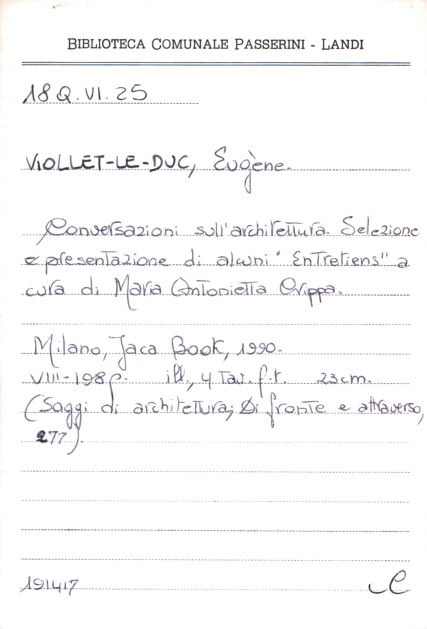 BIBLIOTECA COMUNALE PASSERINI - LANDI
18 Q. VI. 25
VIOLLET-LE-DUC, Eugène.
Conversazioni sull'architettura. Selezione
e presentazione di alcuni "Entretiens" a
cura di Maria Antonietta Crippa.
Milano, Jaca Book, 1990.
VIII-198 p. ill., 4 tav. f.t. 23cm.
(Saggi di architettura; Di fronte e attraverso,
277).
191417